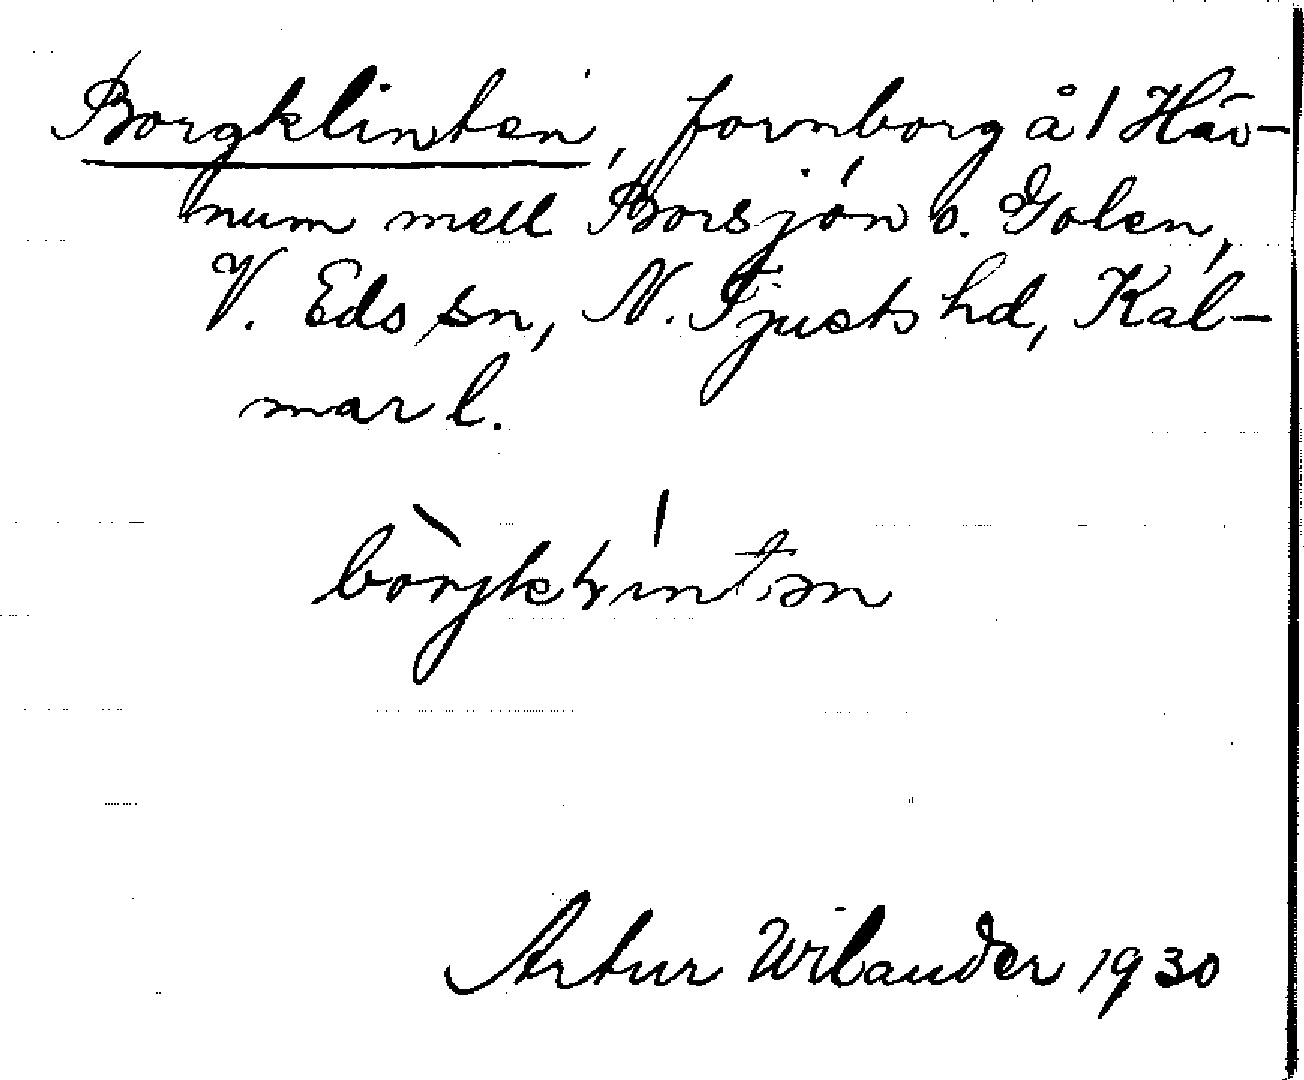 Borgklinten, fornborg å 1 Häv-
num mell Borsjön o. Golen,
V. Eds sn, N. Tjusts hd, Kal-
mar l.
Artur Wilander 1930